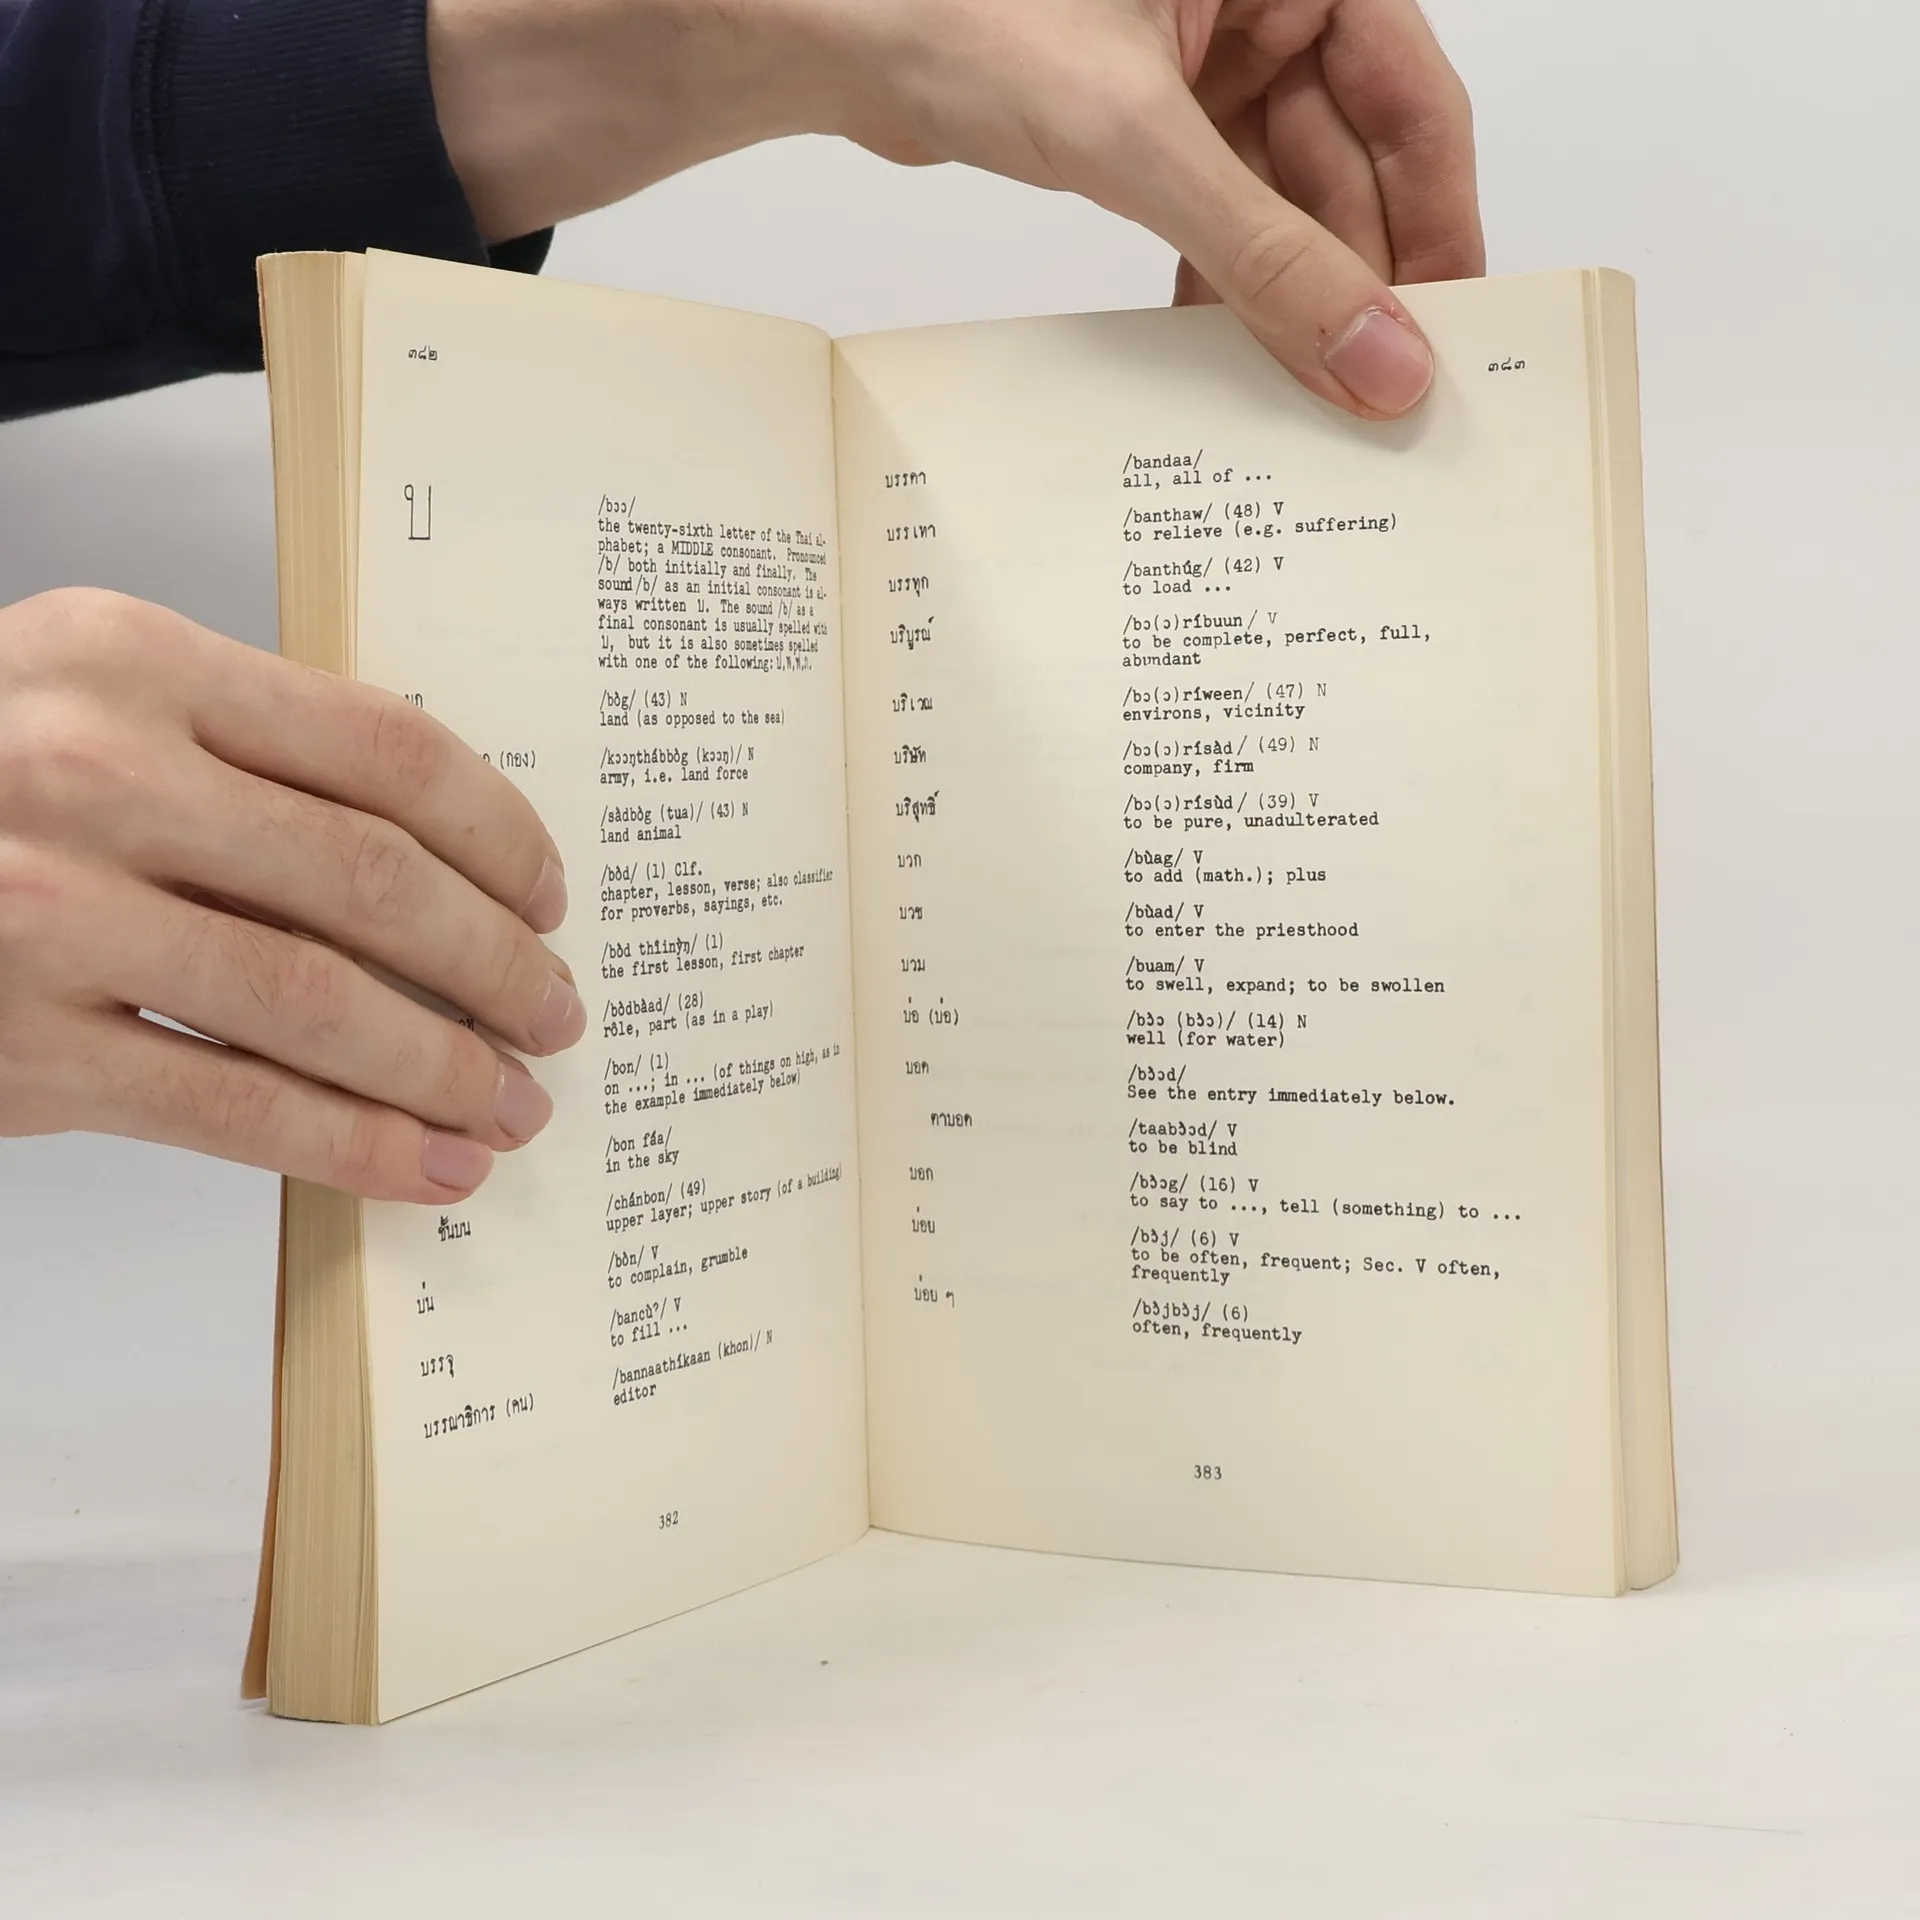 ๓๘๒
บ
/bɔɔ/
the twenty-sixth letter of the Thai al-
phabet; a MIDDLE consonant. Pronounced
/b/ both initially and finally. The
sound /b/ as an initial consonant is al-
ways written บ. The sound /b/ as a
final consonant is usually spelled with
บ, but it is also sometimes spelled
with one of the following:
/bòg/ (43) N
land (as opposed to the sea)
(กอง)
/kɔɔŋthábbòg (kɔɔŋ)/ N
army, i.e. land force
/sàdbòg (tua)/ (43) N
land animal
/bòd/ (1) Clf.
chapter, lesson, verse; also classifier
for proverbs, sayings, etc.
/bòd thîinỳŋ/ (1)
the first lesson, first chapter
/bòdbàad/ (28)
rôle, part (as in a play)
/bon/ (1)
on ...; in ... (of things on high, as in
the example immediately below)
/bon fáa/
in the sky
ชั้นบน
/chánbon/ (49)
upper layer; upper story (of a building)
บ่น
/bòn/ V
to complain, grumble
บรรจุ
/bancùʔ/ V
to fill ...
บรรณาธิการ (คน)
/bannaathíkaan (khon)/ N
editor
382
๓๘๓
บรรดา
/bandaa/
all, all of ...
บรรเทา
/banthaw/ (48) V
to relieve (e.g. suffering)
บรรทุก
/banthúg/ (42) V
to load ...
บริบูรณ์
/bɔ(ɔ)ríbuun/ V
to be complete, perfect, full,
abundant
บริเวณ
/bɔ(ɔ)ríween/ (47) N
environs, vicinity
บริษัท
/bɔ(ɔ)rísàd/ (49) N
company, firm
บริสุทธิ์
/bɔ(ɔ)rísùd/ (39) V
to be pure, unadulterated
บวก
/bùag/ V
to add (math.); plus
บวช
/bùad/ V
to enter the priesthood
บวม
/buam/ V
to swell, expand; to be swollen
บ่อ (บ่อ)
/bɔ̀ɔ (bɔ̀ɔ)/ (14) N
well (for water)
บอด
/bɔ̀ɔd/
See the entry immediately below.
ตาบอด
/taabɔ̀ɔd/ V
to be blind
บอก
/bɔ̀ɔg/ (16) V
to say to ..., tell (something) to ...
บ่อย
/bɔ̀j/ (6) V
to be often, frequent; Sec. V often,
frequently
บ่อย ๆ
/bɔ̀jbɔ̀j/ (6)
often, frequently
383